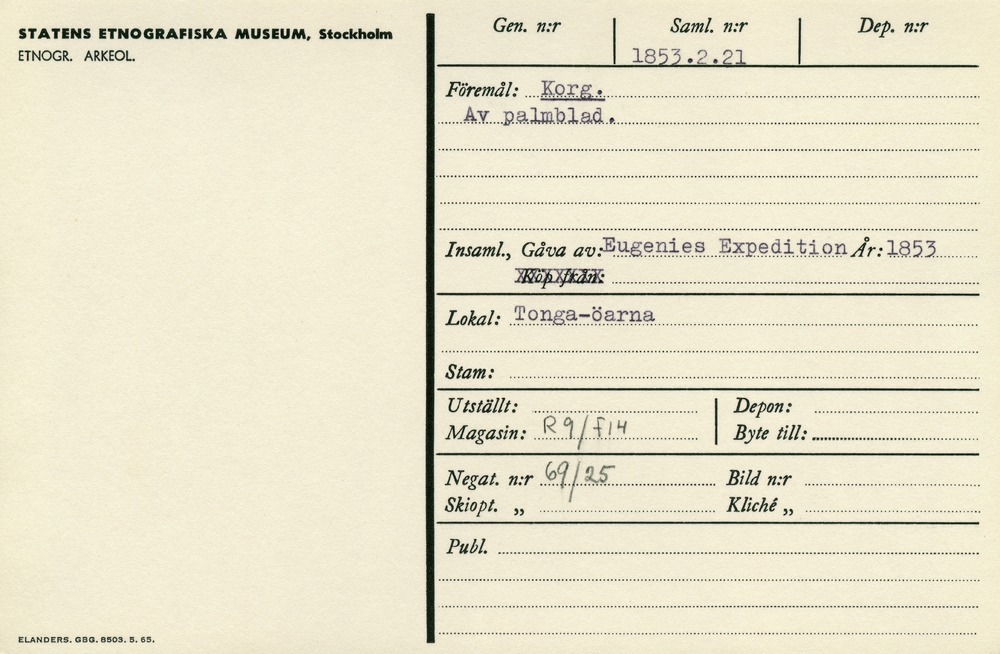 STATENS ETNOGRAFISKA MUSEUM, Stockholm
ETNOGR. ARKEOL.
Gen. n:r Saml. n:r Dep. n:r
1853.2.21
Föremål: Korg.
Av palmblad.
Insaml., Gåva av: Eugenies Expedition År: 1853
Köp från:
Lokal: Tonga-öarna
Stam:
Utställt: Depon:
Magasin: R9/f14 Byte till:
Negat. n:r 69/25 Bild n:r
Skiopt. „ Kliché „
Publ.
ELANDERS. GBG. 8503. 5. 65.